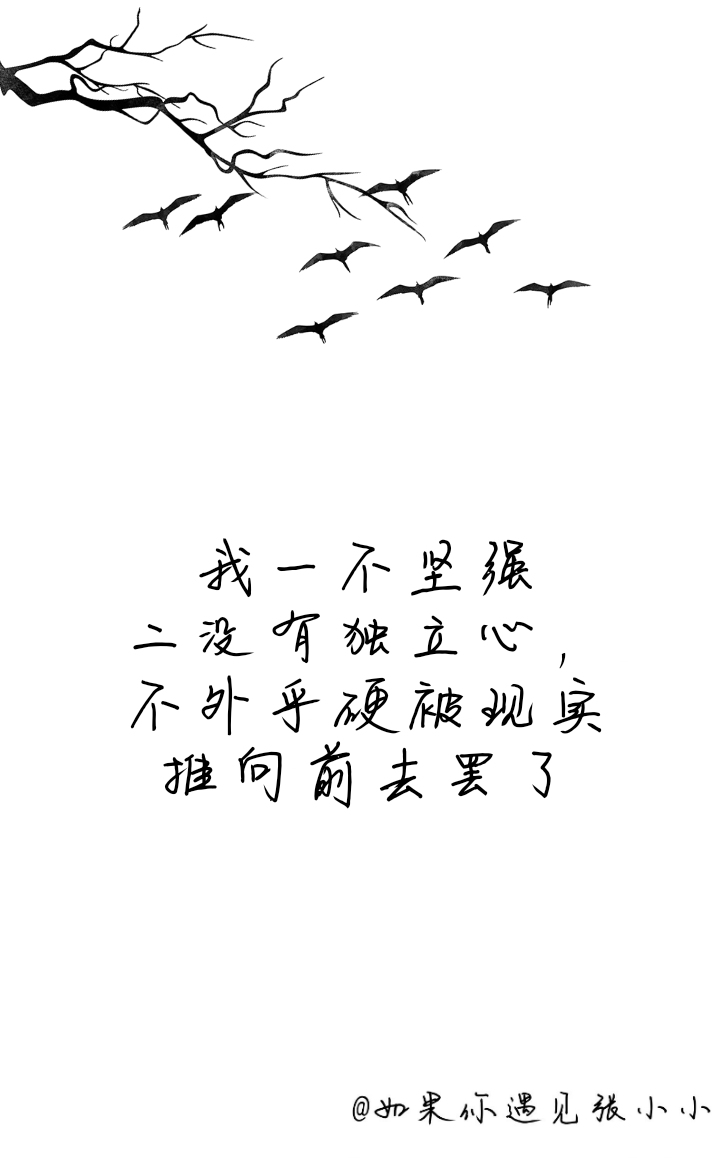 我一不坚强
二没有独立心，
不外乎硬被现实
推向前去罢了
@如果你遇见张小小